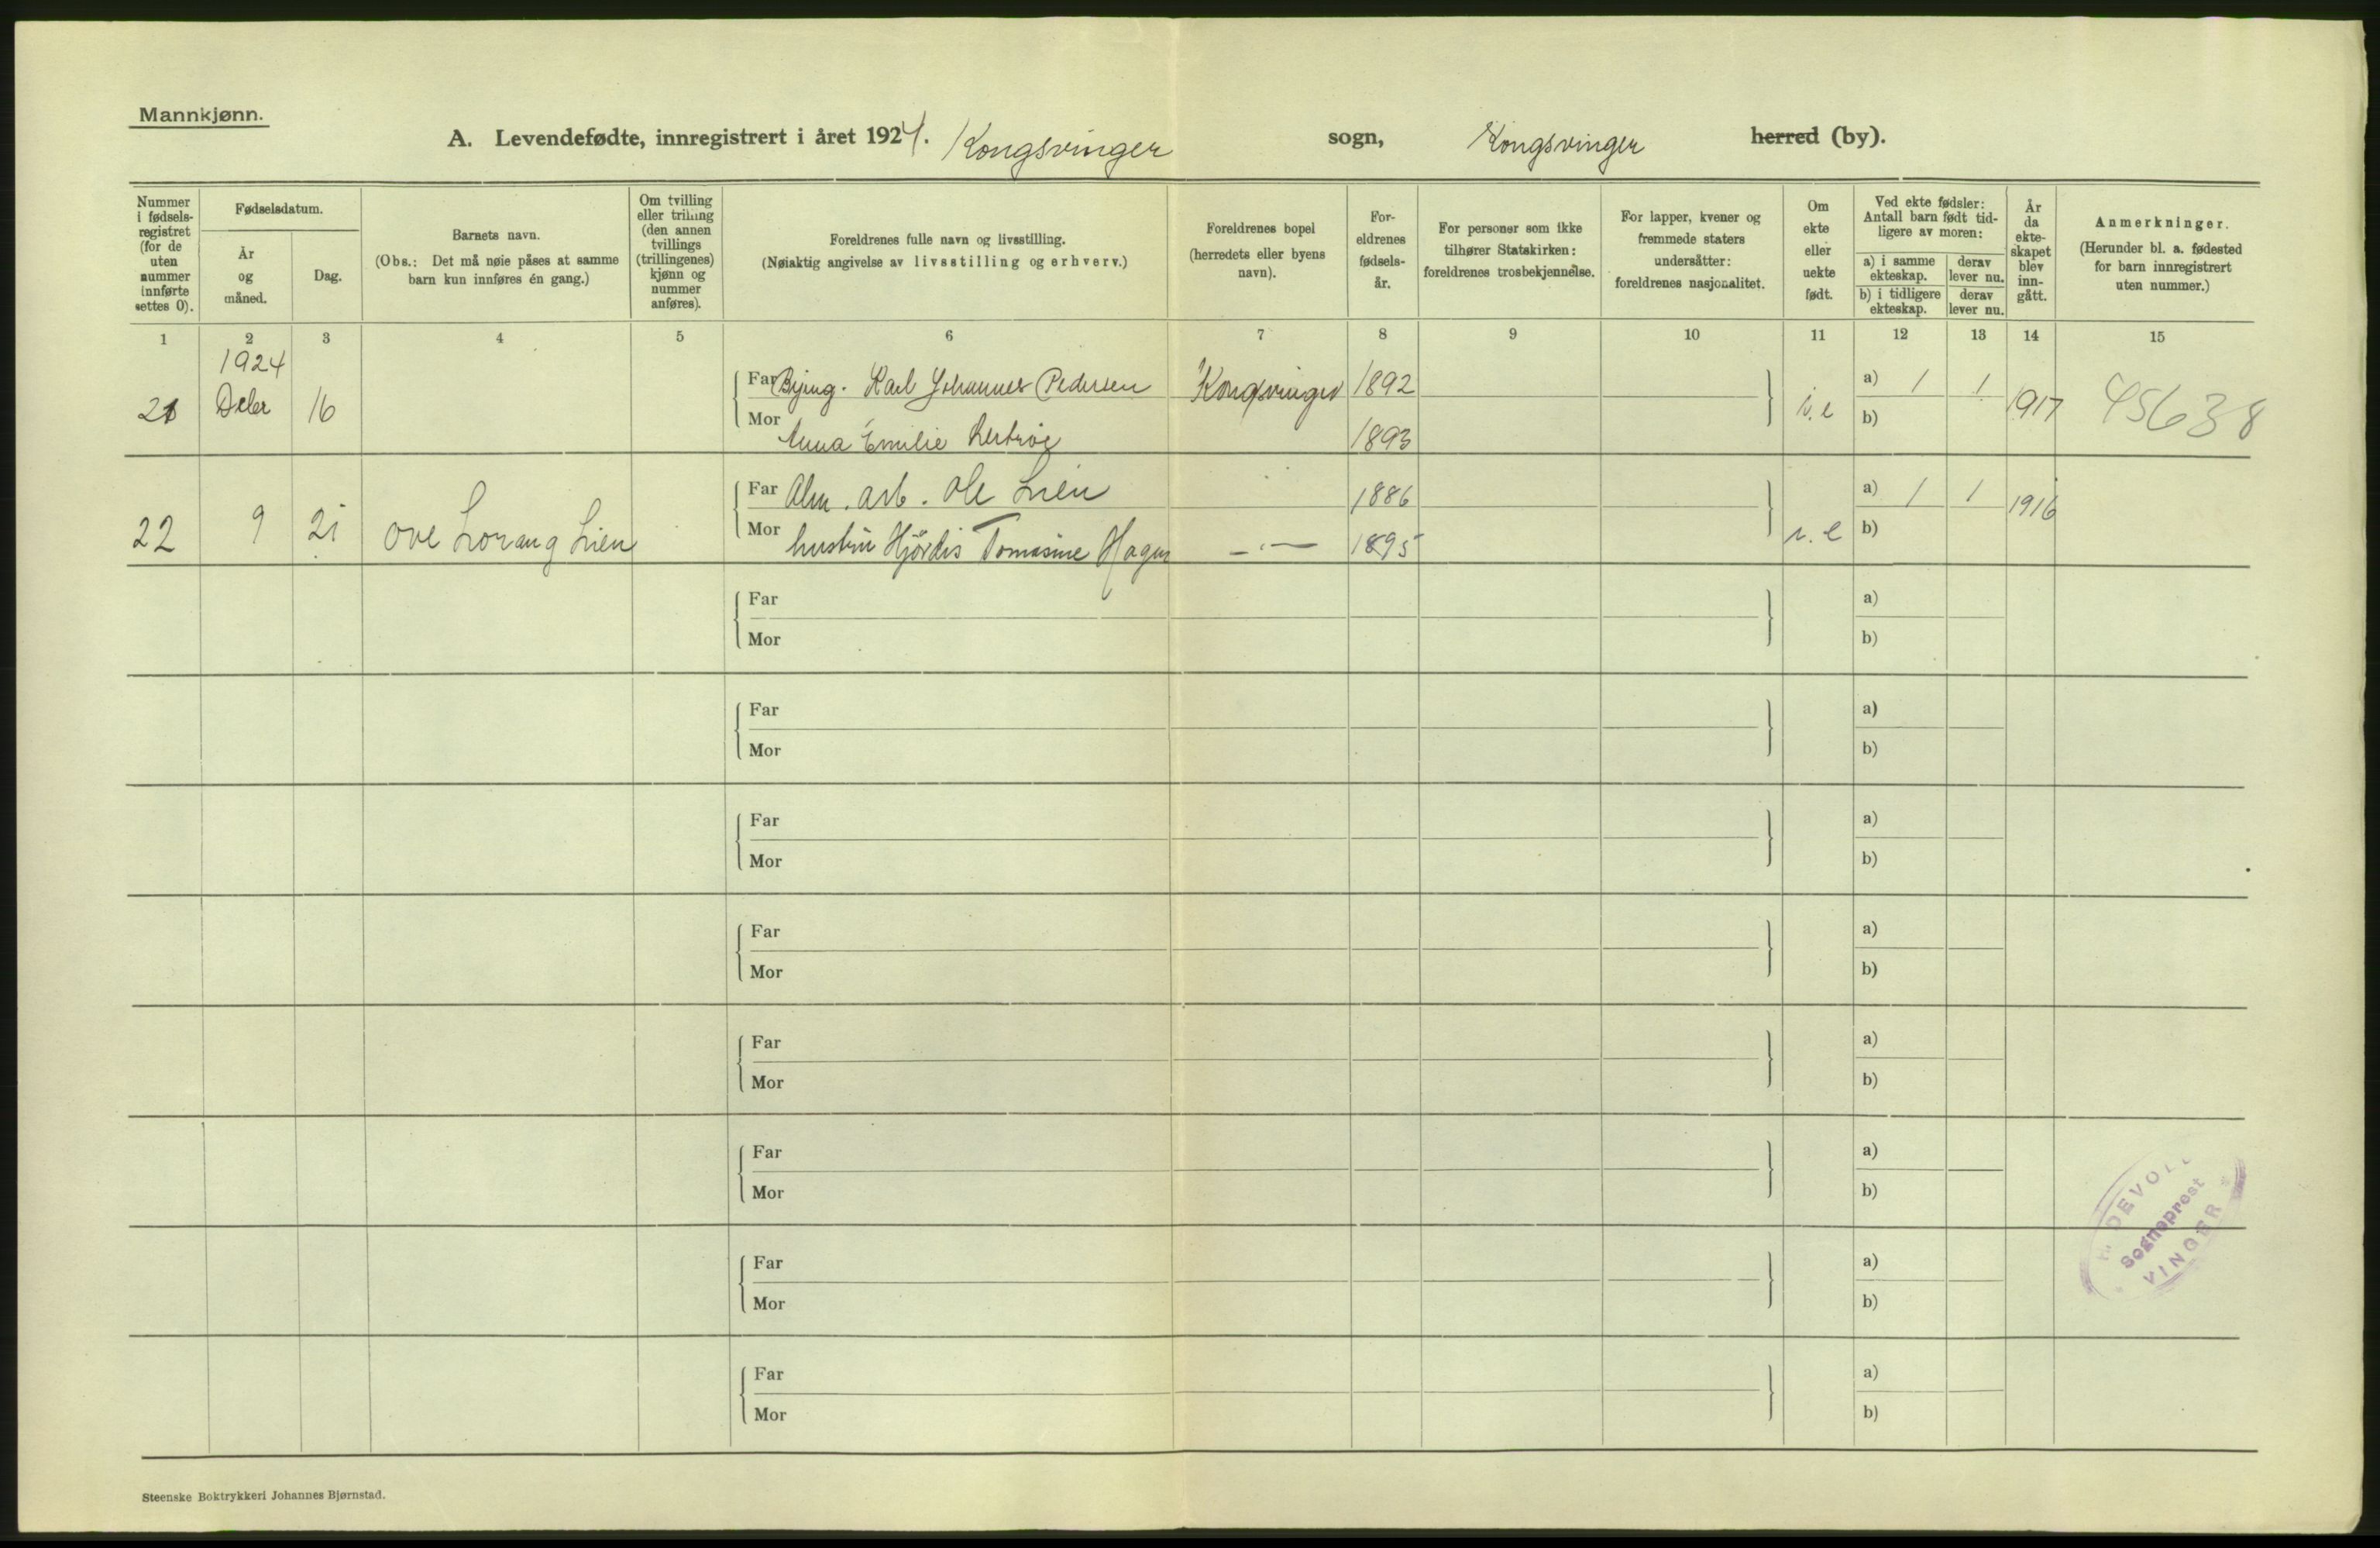 Mannkjønn.
A. Levendefødte, innregistrert i året 1924. Kongsvinger sogn, Kongsvinger herred (by).
Nummer i fødsels-registret (for de uten nummer innførte settes 0).
Fødselsdatum.
År og måned.
Dag.
Barnets navn.
(Obs.: Det må nøie påses at samme barn kun innføres én gang.)
Om tvilling eller trilling (den annen tvillings (trillingenes) kjønn og nummer anføres).
Foreldrenes fulle navn og livsstilling.
(Nøiaktig angivelse av livsstilling og erhverv.)
Foreldrenes bopel
(herredets eller byens navn).
For-eldrenes fødsels-år.
For personer som ikke tilhører Statskirken: foreldrenes trosbekjennelse.
For lapper, kvener og fremmede staters undersåtter: foreldrenes nasjonalitet.
Om ekte eller uekte født.
Ved ekte fødsler: Antall barn født tid-ligere av moren:
a) i samme ekteskap.
derav lever nu.
b) i tidligere ekteskap.
derav lever nu.
År da ekte-skapet blev inn-gått.
Anmerkninger.
(Herunder bl. a. fødested for barn innregistrert uten nummer.)
1 2 3 4 5 6 7 8 9 10 11 12 13 14 15
1924
21 16 Far Karl Johannes Pedersen Kongsvinger 1892 a) 1 1 1917 45638
Mor Anna Emilie 1893 b)
22 9 21 Ove Lorang Lien Far Alm. arb. Ole Lien 1886 a) 1 1 1916
Mor hustru Hjördis Tomasine Hagen — " — 1895 b)
Far a)
Mor b)
Far a)
Mor b)
Far a)
Mor b)
Far a)
Mor b)
Far a)
Mor b)
Far a)
Mor b)
Far a)
Mor b)
Far a)
Mor b)
Sogneprest
VINGER
Steenske Boktrykkeri Johannes Bjørnstad.